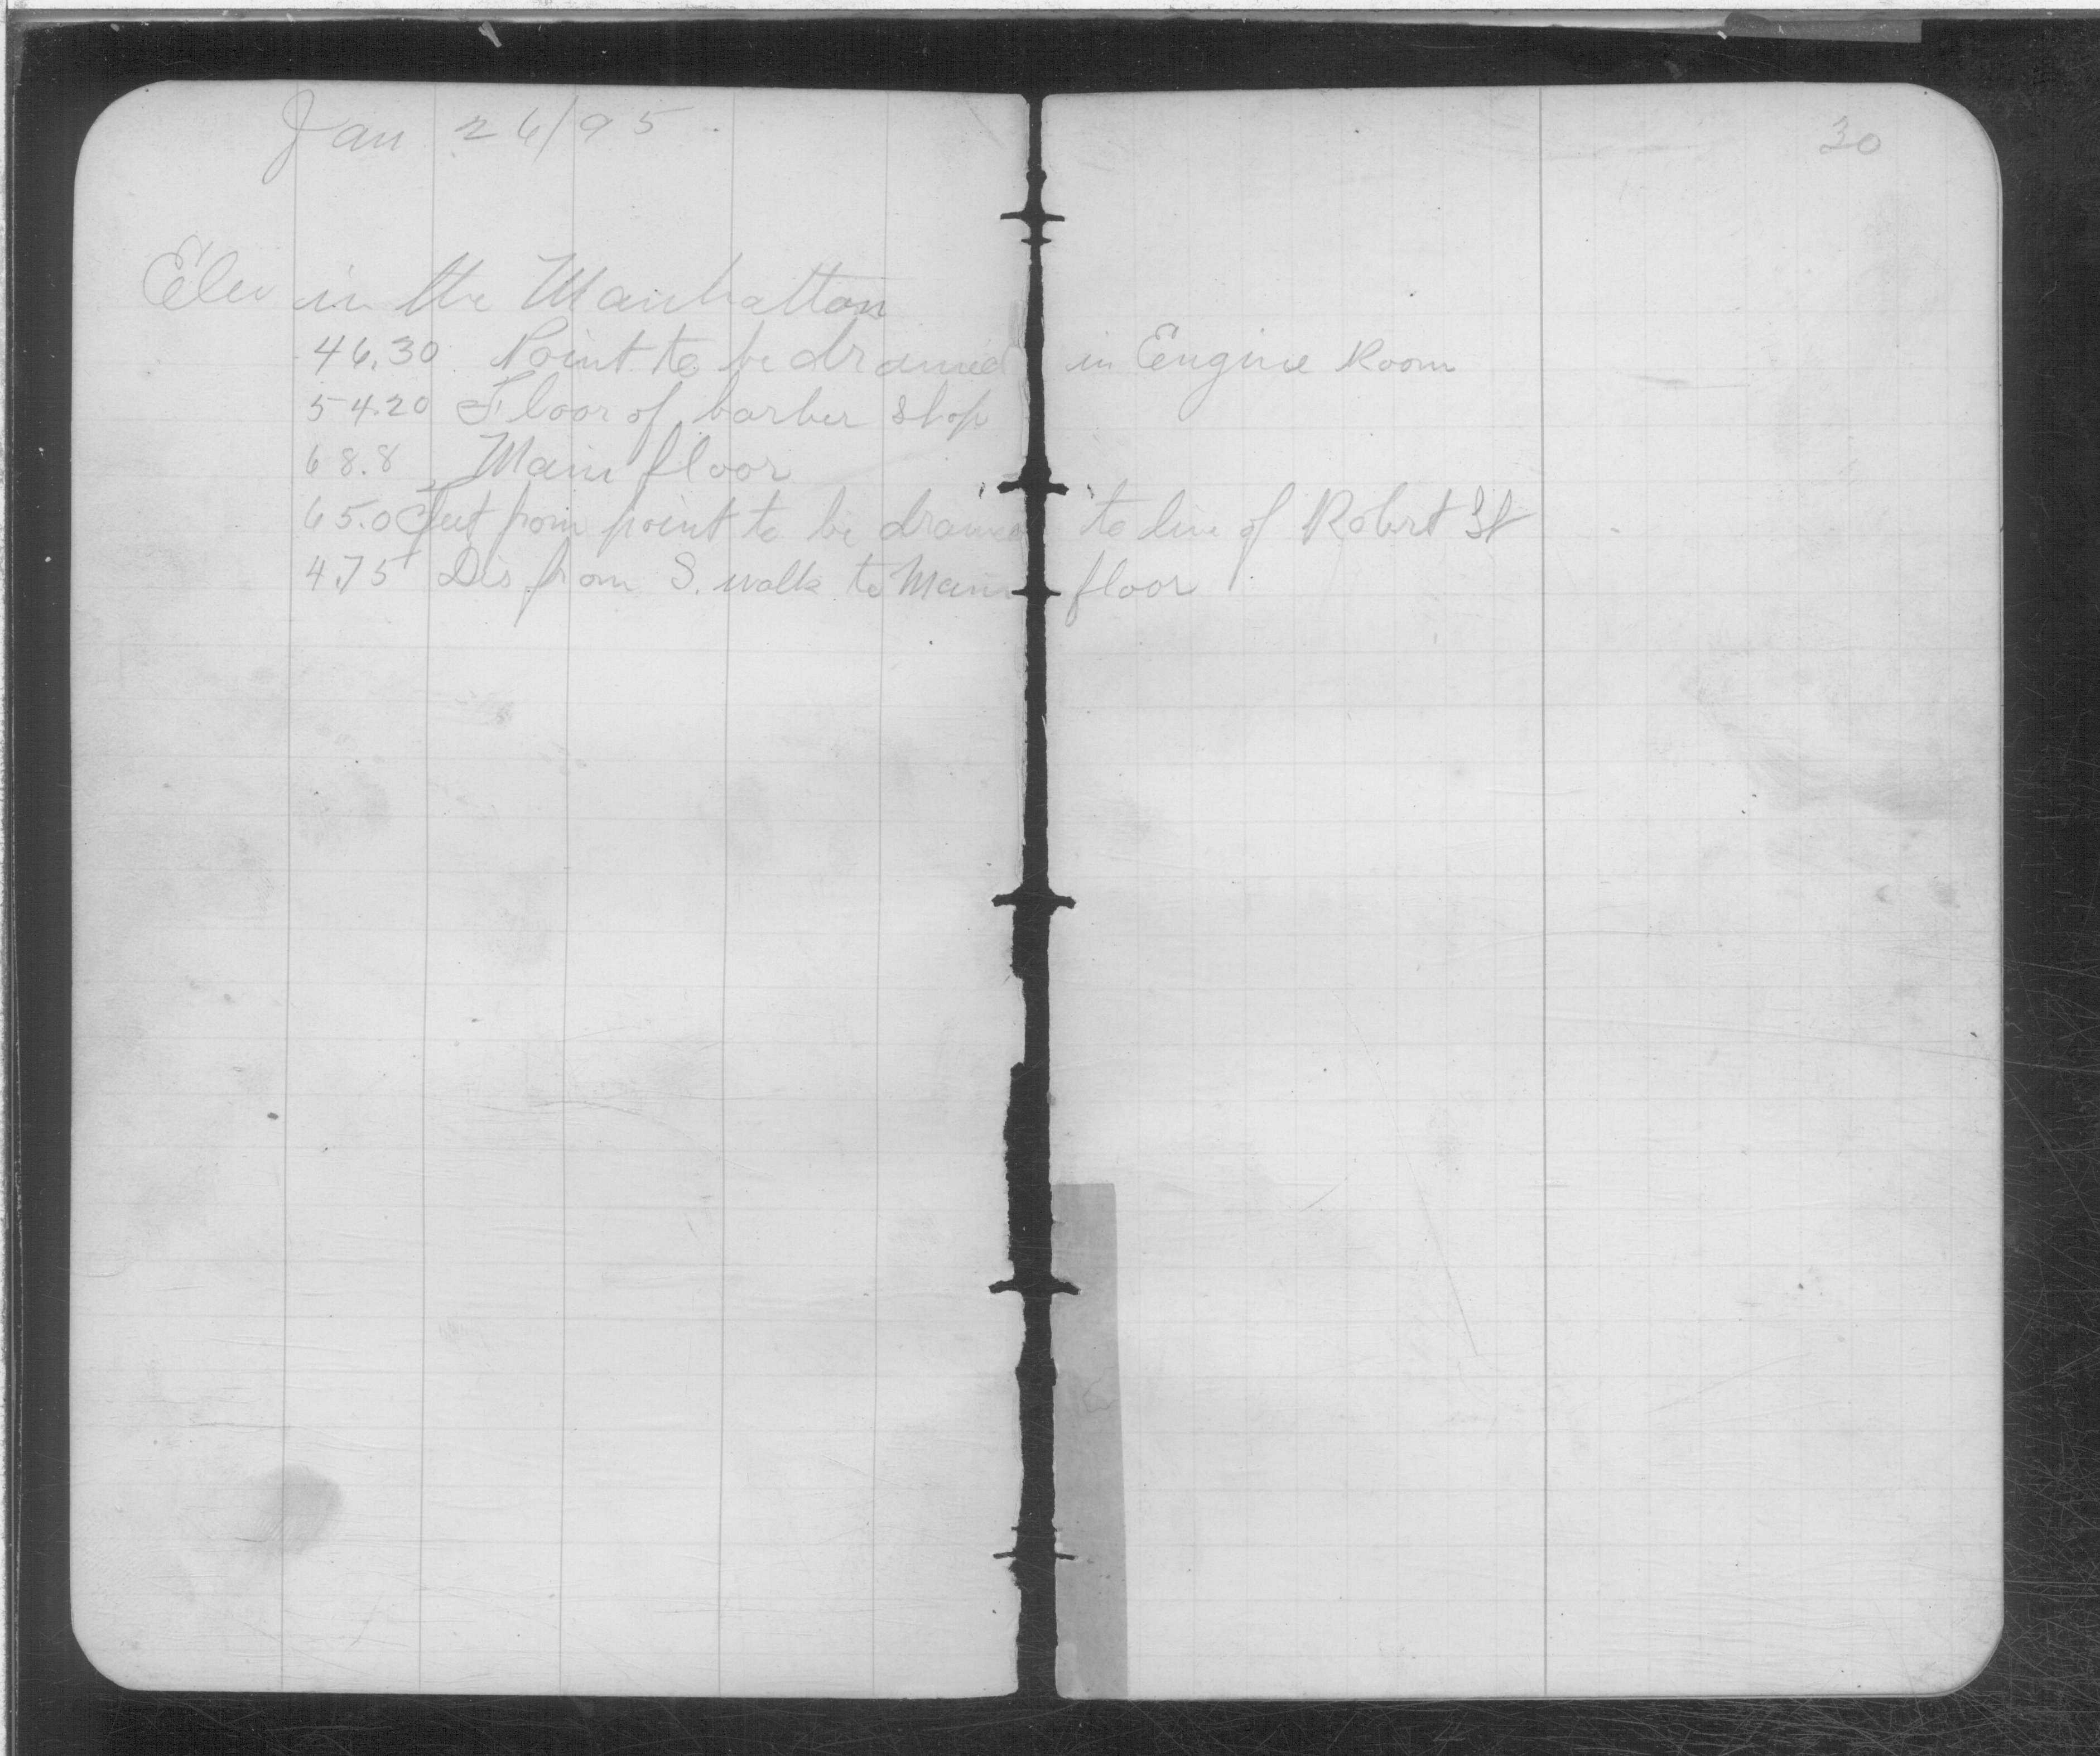 Jan 26/95
30
Elev in the Manhattan
46.30 Point to be drained in Engine Room
54.20 Floor of barber shop
68.8 Main floor
65.0 feet from point to be drained to line of Robert St
4.75 Dis from S. walk to Main floor